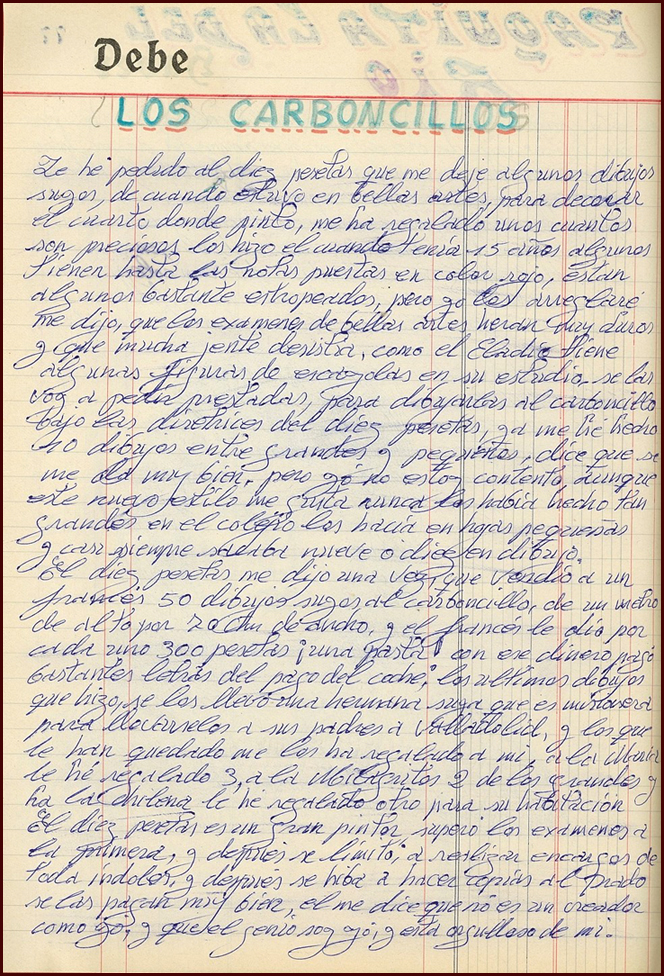 Debe
LOS CARBONCILLOS
Le hé pedido al diez pesetas que me deje algunos dibujos
sugos, de cuando estuvo en bellas artes, para decorar
el cuarto donde pinto, me ha regalado unos cuantos
son preciosos los hizo el cuando tenia 15 años algunos
tienen hasta las notas puestas en color rojo, están
algunos bastante estropeados, pero yo los arreglaré
me dijo, que los examenes de bellas artes heran muy duros
y que mucha jente desistia, como el Eladio tiene
algunas figuras de escayolas en su estudio se las
voy a pedir prestadas, para dibujarlas al carboncillo
bajo las diretrices del diez pesetas, ya me hé hecho
10 dibujos entre grandes y pequeños, dice que se
me da muy bien, pero yó no estoy contento, aunque
este nuevo estilo me gusta nunca los habia hecho tan
grandes en el colegio los hacia en hojas pequeñas
y casi siempre sacaba nueve o diez en dibujo.
El diez pesetas me dijo una vez, que vendió a un
francés 50 dibujos sugos al carboncillo, de un metro
de alto por 70 cm de ancho, y el francés le dio por
cada uno 300 pesetas ¡una pasta! con ese dinero pagó
bastantes letras del pago del coche, los ultimos dibujos
que hizo, se los llevó una hermana suya que es misionera
para llevárselos a sus padres a Valladolid, y los que
le han quedado me los ha regalado a mi, a la Maria
le hé regalado 3, a la Milagritos 2 de los grandes y
ha la chilena le hé regalado otro para su habitación
El diez pesetas es un gran pintor superó los examenes a
la primera, y después se limitó, a realizar encargos de
toda indoles, y después se hiba a hacer copias al Prado
se las pagan muy bien, el me dice que nó es un creador
como yó, y que el genio soy yó, y está orgulloso de mi.